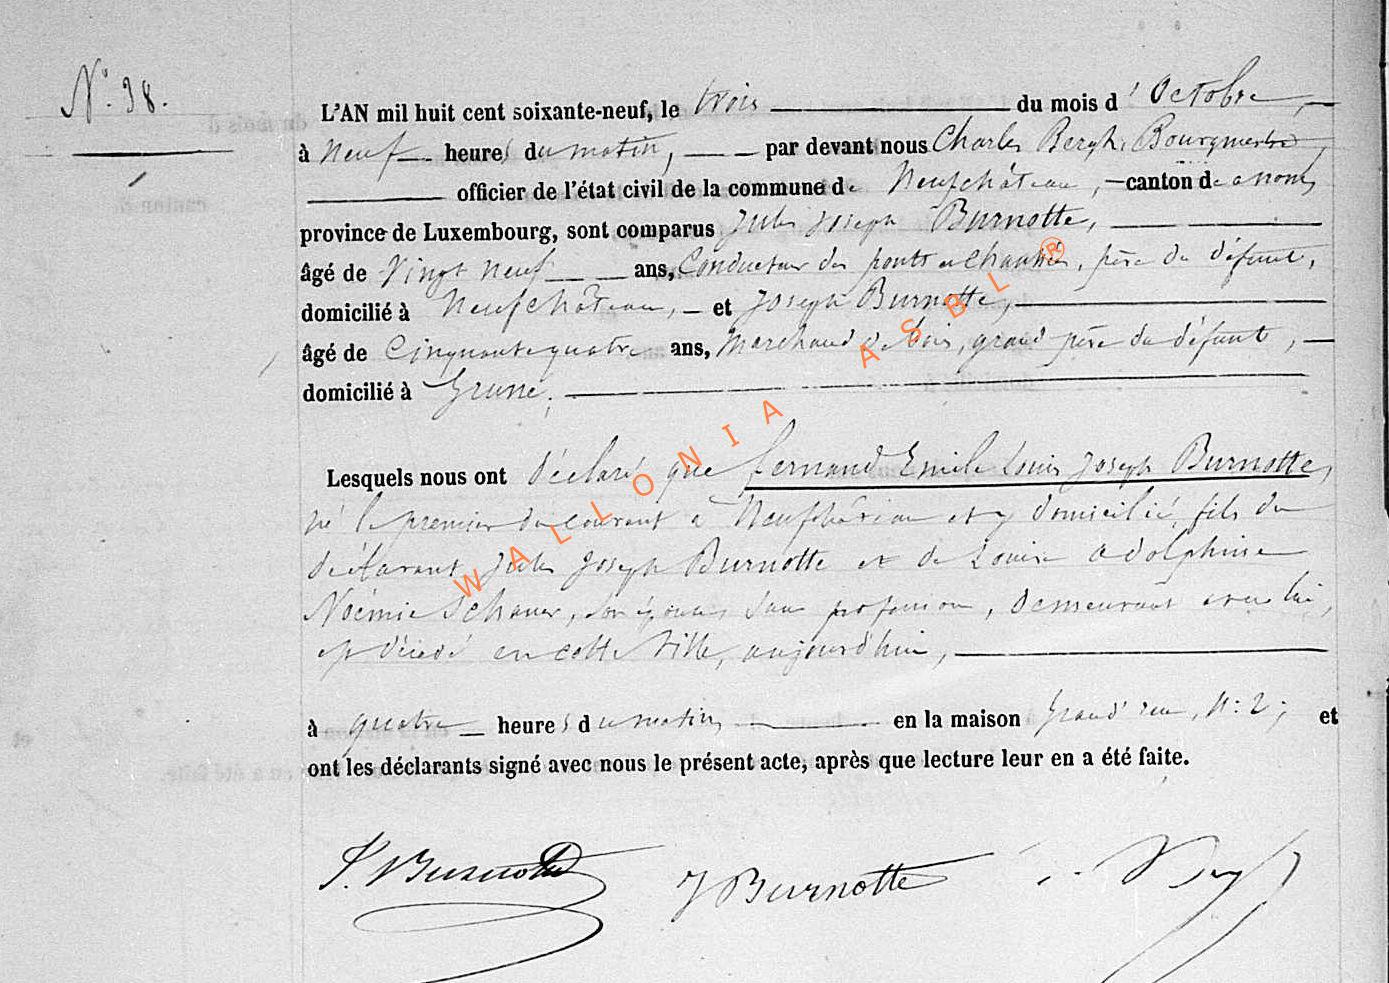 N° 38.
L'AN mil huit cent soixante-neuf, le trois du mois d'Octobre,
à neuf heures du matin, par devant nous Charles Bergh, Bourgmestre,
officier de l'état civil de la commune de Neufchâteau, canton de nom,
province de Luxembourg, sont comparus Jules Joseph Burnotte,
âgé de Vingt neuf ans, Conducteur des ponts et chaussées, père du défunt,
domicilié à Neufchâteau, et Joseph Burnotte,
âgé de Cinquante quatre ans, Marchand de bois, grand père du défunt,
domicilié à Grune,
Lesquels nous ont déclaré que Fernand Emile Louis Joseph Burnotte,
né le premier du courant à Neufchâteau et y domicilié, fils du
déclarant Jules Joseph Burnotte et de Louise Adolphine
Noémie Schauer, son épouse, sans profession, demeurant avec lui,
est décédé en cette Ville, aujourd'hui,
à quatre heures du matin, en la maison Grand'rue, N: 2; et
ont les déclarants signé avec nous le présent acte, après que lecture leur en a été faite.
J. Burnotte J Burnotte
WALLONIA ASBL ®